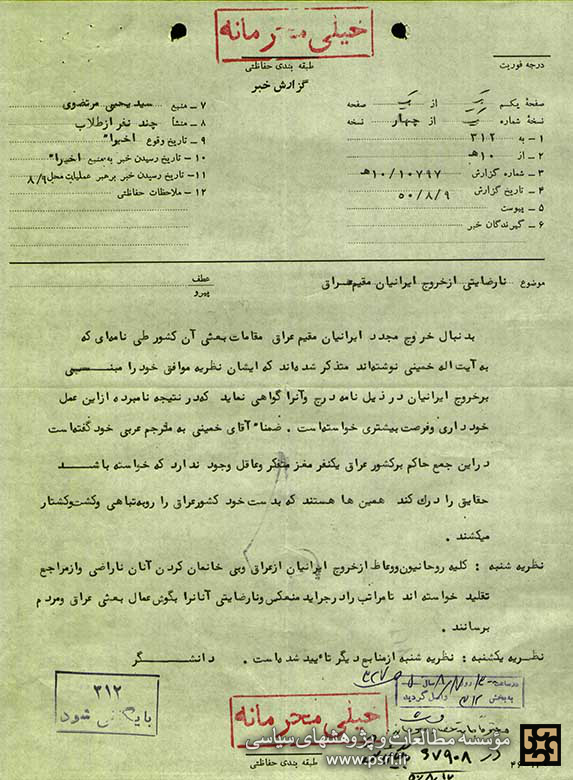 خیلی محرمانه
طبقه بندی حفاظتی
گزارش خبر
درجه فوریت
صفحهٔ یکم یک از یک صفحه
نسخهٔ شماره یک از چهار نسخه
۱ ـ به ۳۱۲
۲ ـ از ۱۰هـ
۳ ـ شماره گزارش ۱۰/۱۰۷۹۷هـ
۴ ـ تاریخ گزارش ۵۰/۸/۹
۵ ـ پیوست
۶ ـ گیرندگان خبر
۷ ـ منبع سید یحیی مرتضوی
۸ ـ منشأ چند نفر از طلاب
۹ ـ تاریخ وقوع اخیراً
۱۰ ـ تاریخ رسیدن خبر به منبع اخیراً
۱۱ ـ تاریخ رسیدن خبر برهبر عملیات محل ۸/۹
۱۲ ـ ملاحظات حفاظتی
موضوع نارضایتی ازخروج ایرانیان مقیم عراق
عطف
پیرو
بدنبال خروج مجدد ایرانیان مقیم عراق مقامات بعثی آن کشور طی نامه‌ای که
به آیت اله خمینی نوشته‌اند متذکر شده‌اند که ایشان نظریه موافق خود را مبنی
برخروج ایرانیان در ذیل نامه درج وآنرا گواهی نماید که در نتیجه نامبرده ازاین عمل
خودداری وفرصت بیشتری خواسته‌است . ضمناً آقای خمینی به مترجم عربی خود گفته‌است
دراین جمع حاکم برکشور عراق یکنفر مغز متفکر وعاقل وجود ندارد که خواسته باشد
حقایق را درک کند همین ها هستند که بدست خود کشور عراق را روبه‌تباهی وکشت‌وکشتار
میکشند .
نظریه شنبه : کلیه روحانیون ووعاظ ازخروج ایرانیان ازعراق وبی خانمان کردن آنان ناراضی وازمراجع
تقلید خواسته اند تامراتب رادرجراید منعکس ونارضایتی آنانرا بگوش عمال بعثی عراق ومردم
برسانند .
نظریه یکشنبه : نظریه شنبه ازمنابع دیگر تأیید شده‌است . دانشگر
۳۱۲
بایگانی شود
خیلی محرمانه
موسسه مطالعات و پژوهشهای سیاسی
www.psri.ir
طبقه بندی حفاظتی